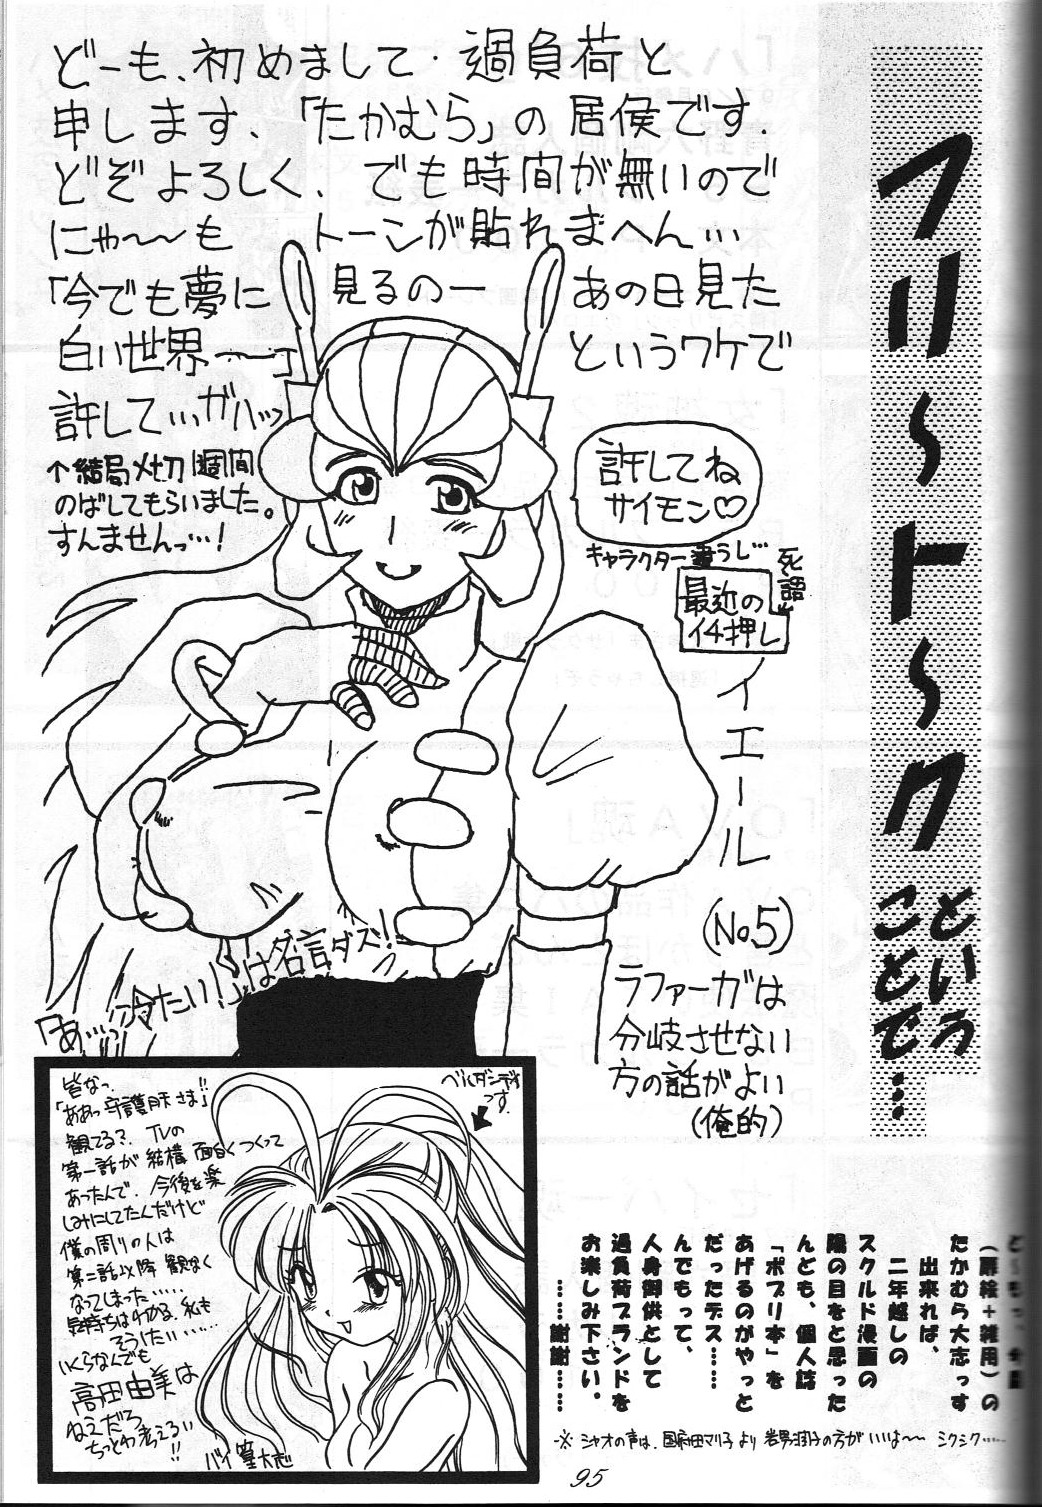 フリ〜ト〜ク
という
ことで…
どーも、初めまして・過負荷と
申します、「たかむら」の居候です.
どぞよろしく、でも時間が無いので
にゃ〜〜も トーンが貼れまへん…
「今でも夢に見るのー あの日見た
白い世界ー—」というワケで
許して…ガハッ
↑結局〆切1週間
のばしてもらいました。
すんませんっ…!
許してね
サイモン♡
キャラクター違うし…
死語
最近の
イチ押し
イエール
(No.5)
ラファーガは
分岐させない
方の話がよい
(俺的)
「あ…冷たい!」は名言ダズ!
皆なっ.
「ああっ守護月天さま!!」
観てる?. TVの
第一話が結構面白くつくって
あったんで、今後を楽
しみにしてたんだけど
僕の周りの人は
第二話以降観なく
なってしまった……
気持ちはわかる、私も
そうしたい……
いくらなんでも
高田由美は
ねえだろ
ちっとわ考えろい
!!
ベルダンディ
っす.
バイ 篁大志
(扉絵+雑用)の
たかむら大志っす
出来れば、
二年越しの
スクルド漫画の
陽の目をと思った
んども、個人誌
「ポプリ本」を
あげるのがやっと
だったデス……
んでもって、
人身御供として
過負荷ブランドを
お楽しみ下さい。
……謝謝……
※シャオの声は、国府田マリ子より岩男潤子の方がいいは〜〜 シクシク……
95